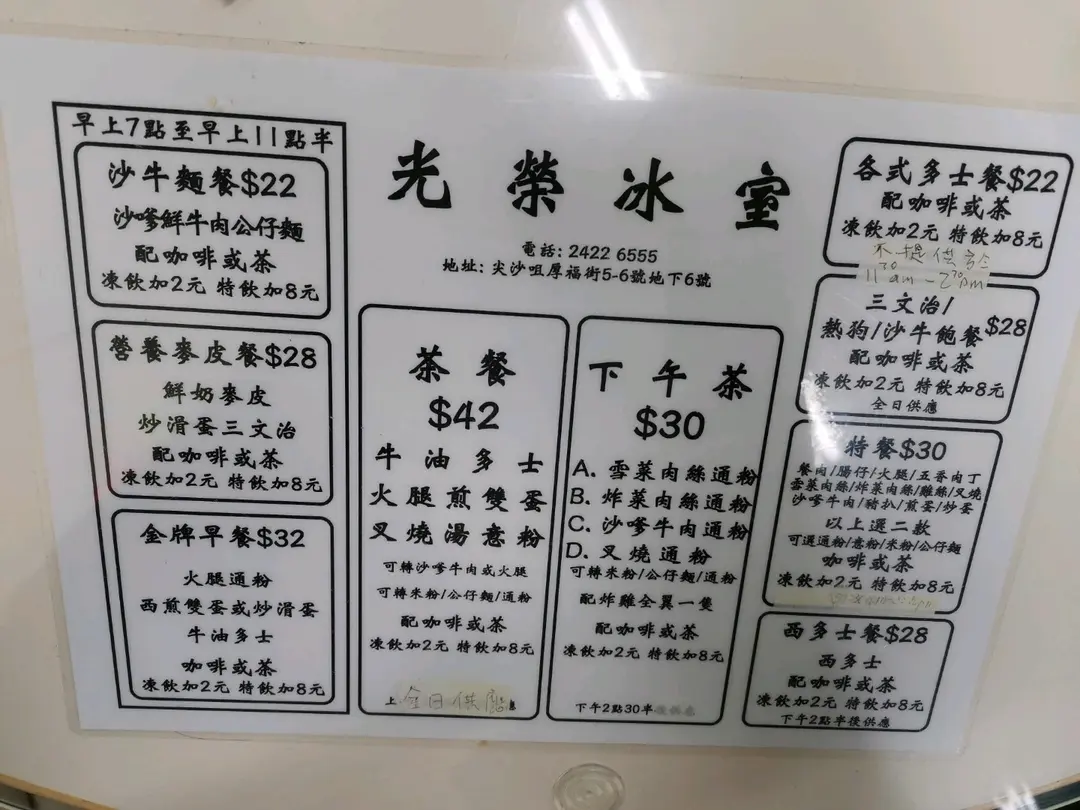 早上7點至早上11點半
沙牛麵餐$22
沙嗲鮮牛肉公仔麵
配咖啡或茶
凍飲加2元 特飲加8元
營養麥皮餐$28
鮮奶麥皮
炒滑蛋三文治
配咖啡或茶
凍飲加2元 特飲加8元
金牌早餐$32
火腿通粉
西煎雙蛋或炒滑蛋
牛油多士
咖啡或茶
凍飲加2元 特飲加8元
光榮冰室
電話: 2422 6555
地址: 尖沙咀厚福街5-6號地下6號
茶餐
$42
牛油多士
火腿煎雙蛋
叉燒湯意粉
可轉沙嗲牛肉或火腿
可轉米粉/公仔麵/通粉
配咖啡或茶
凍飲加2元 特飲加8元
上 全日供應
下午茶
$30
A. 雪菜肉絲通粉
B. 炸菜肉絲通粉
C. 沙嗲牛肉通粉
D. 叉燒通粉
可轉米粉/公仔麵/通粉
配炸雞全翼一隻
配咖啡或茶
凍飲加2元 特飲加8元
下午2點30半後供應
各式多士餐$22
配咖啡或茶
凍飲加2元 特飲加8元
不提供
11 30 am - 2 30 pm
三文治/
熱狗/沙牛飽餐$28
配咖啡或茶
凍飲加2元 特飲加8元
全日供應
特餐$30
餐肉/腸仔/火腿/五香肉丁
雪菜肉絲/炸菜肉絲/雞絲/叉燒
沙嗲牛肉/豬扒/煎蛋/炒蛋
以上選二款
可選通粉/意粉/米粉/公仔麵
咖啡或茶
凍飲加2元 特飲加8元
西多士餐$28
西多士
配咖啡或茶
凍飲加2元 特飲加8元
下午2點半後供應